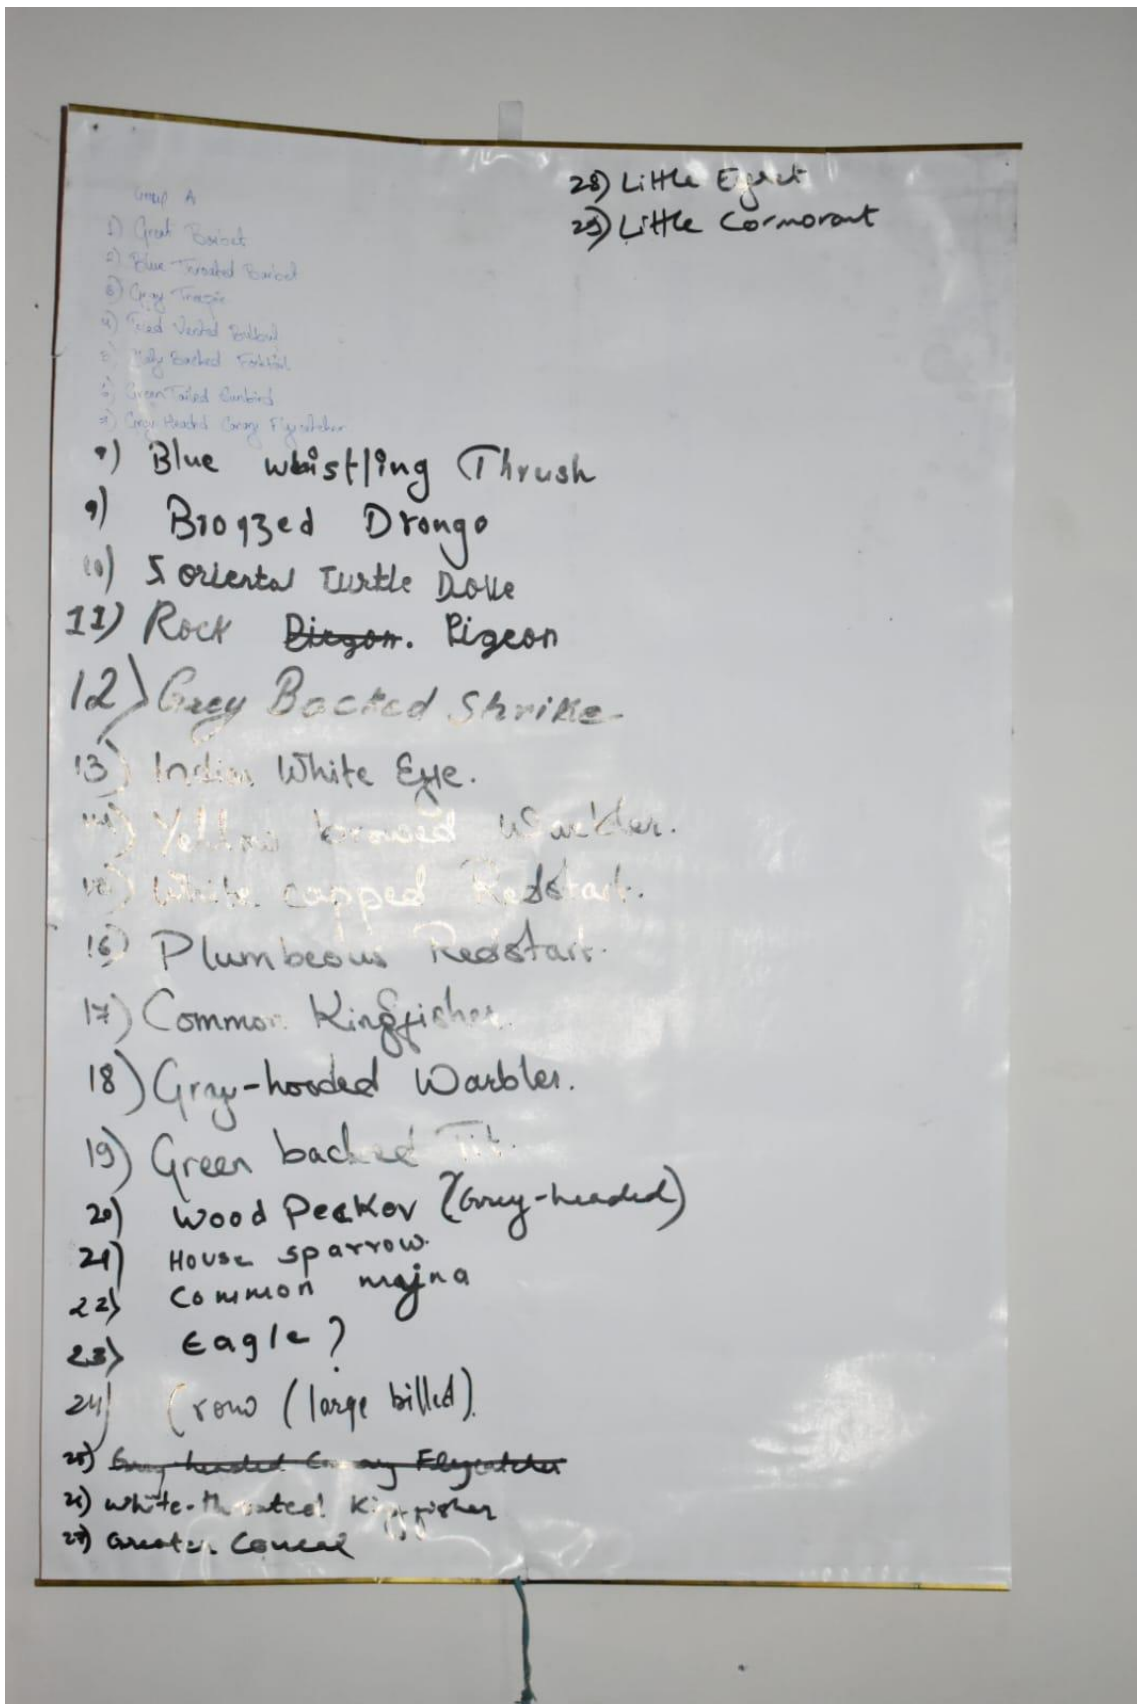 Group A
1) Great Barbet
2) Blue Throated Barbet
3) Gray Treepie
4) Vented Bulbul
5) Backed Forktail
6) Green Tailed Sunbird
7) Grey Headed Canary Flycatcher
8) Blue whistling Thrush
9) Bronzed Drongo
10) oriental Turtle Dove
11) Rock Pigeon
12) Grey Backed Shrike
13) Indian White Eye.
14) Yellow browed Warbler.
15) White capped Redstart.
16) Plumbeous Redstart.
17) Common Kingfisher
18) Gray-hooded Warbler.
19) Green backed Tit.
20) Wood Pecker (Grey-headed)
21) House sparrow.
22) Common majna
23) Eagle?
24) Crow (large billed).
25) Grey headed Canary Flycatcher
26) White-throated Kingfisher
27) Greater Coucal
28) Little Egret
29) Little Cormorant